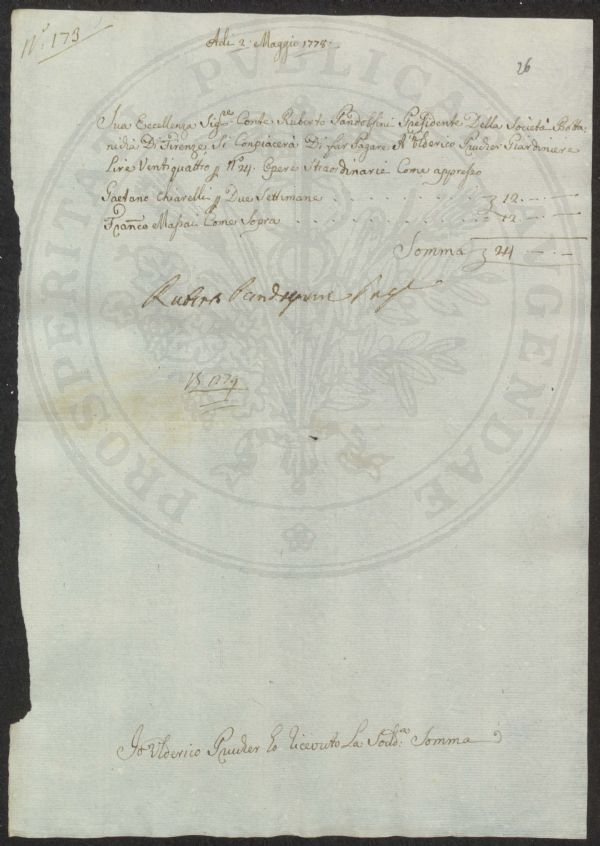 N.° 173
Adi 2: Maggio 1778:
26
Sua Eccellenza Sig.re Conte Ruberto Pandolfini Presidente Della Società Botta=
nicha Di Firenze Si Conpiacerà Di far Pagare A Ulderico Prucker Giardiniere
Lire Ventiquattro p N.° 24. Opere Straordinarie Come appresso
Gaetano Chiarelli p Due Settimane 12
Franco Massai Come Sopra 12
Somma 24
Ruberto Pandolfini
Io Ulderico Prucker ho ricevuto La Sodd.a Somma
PROSPERITATI PVBLICAE AVGENDAE